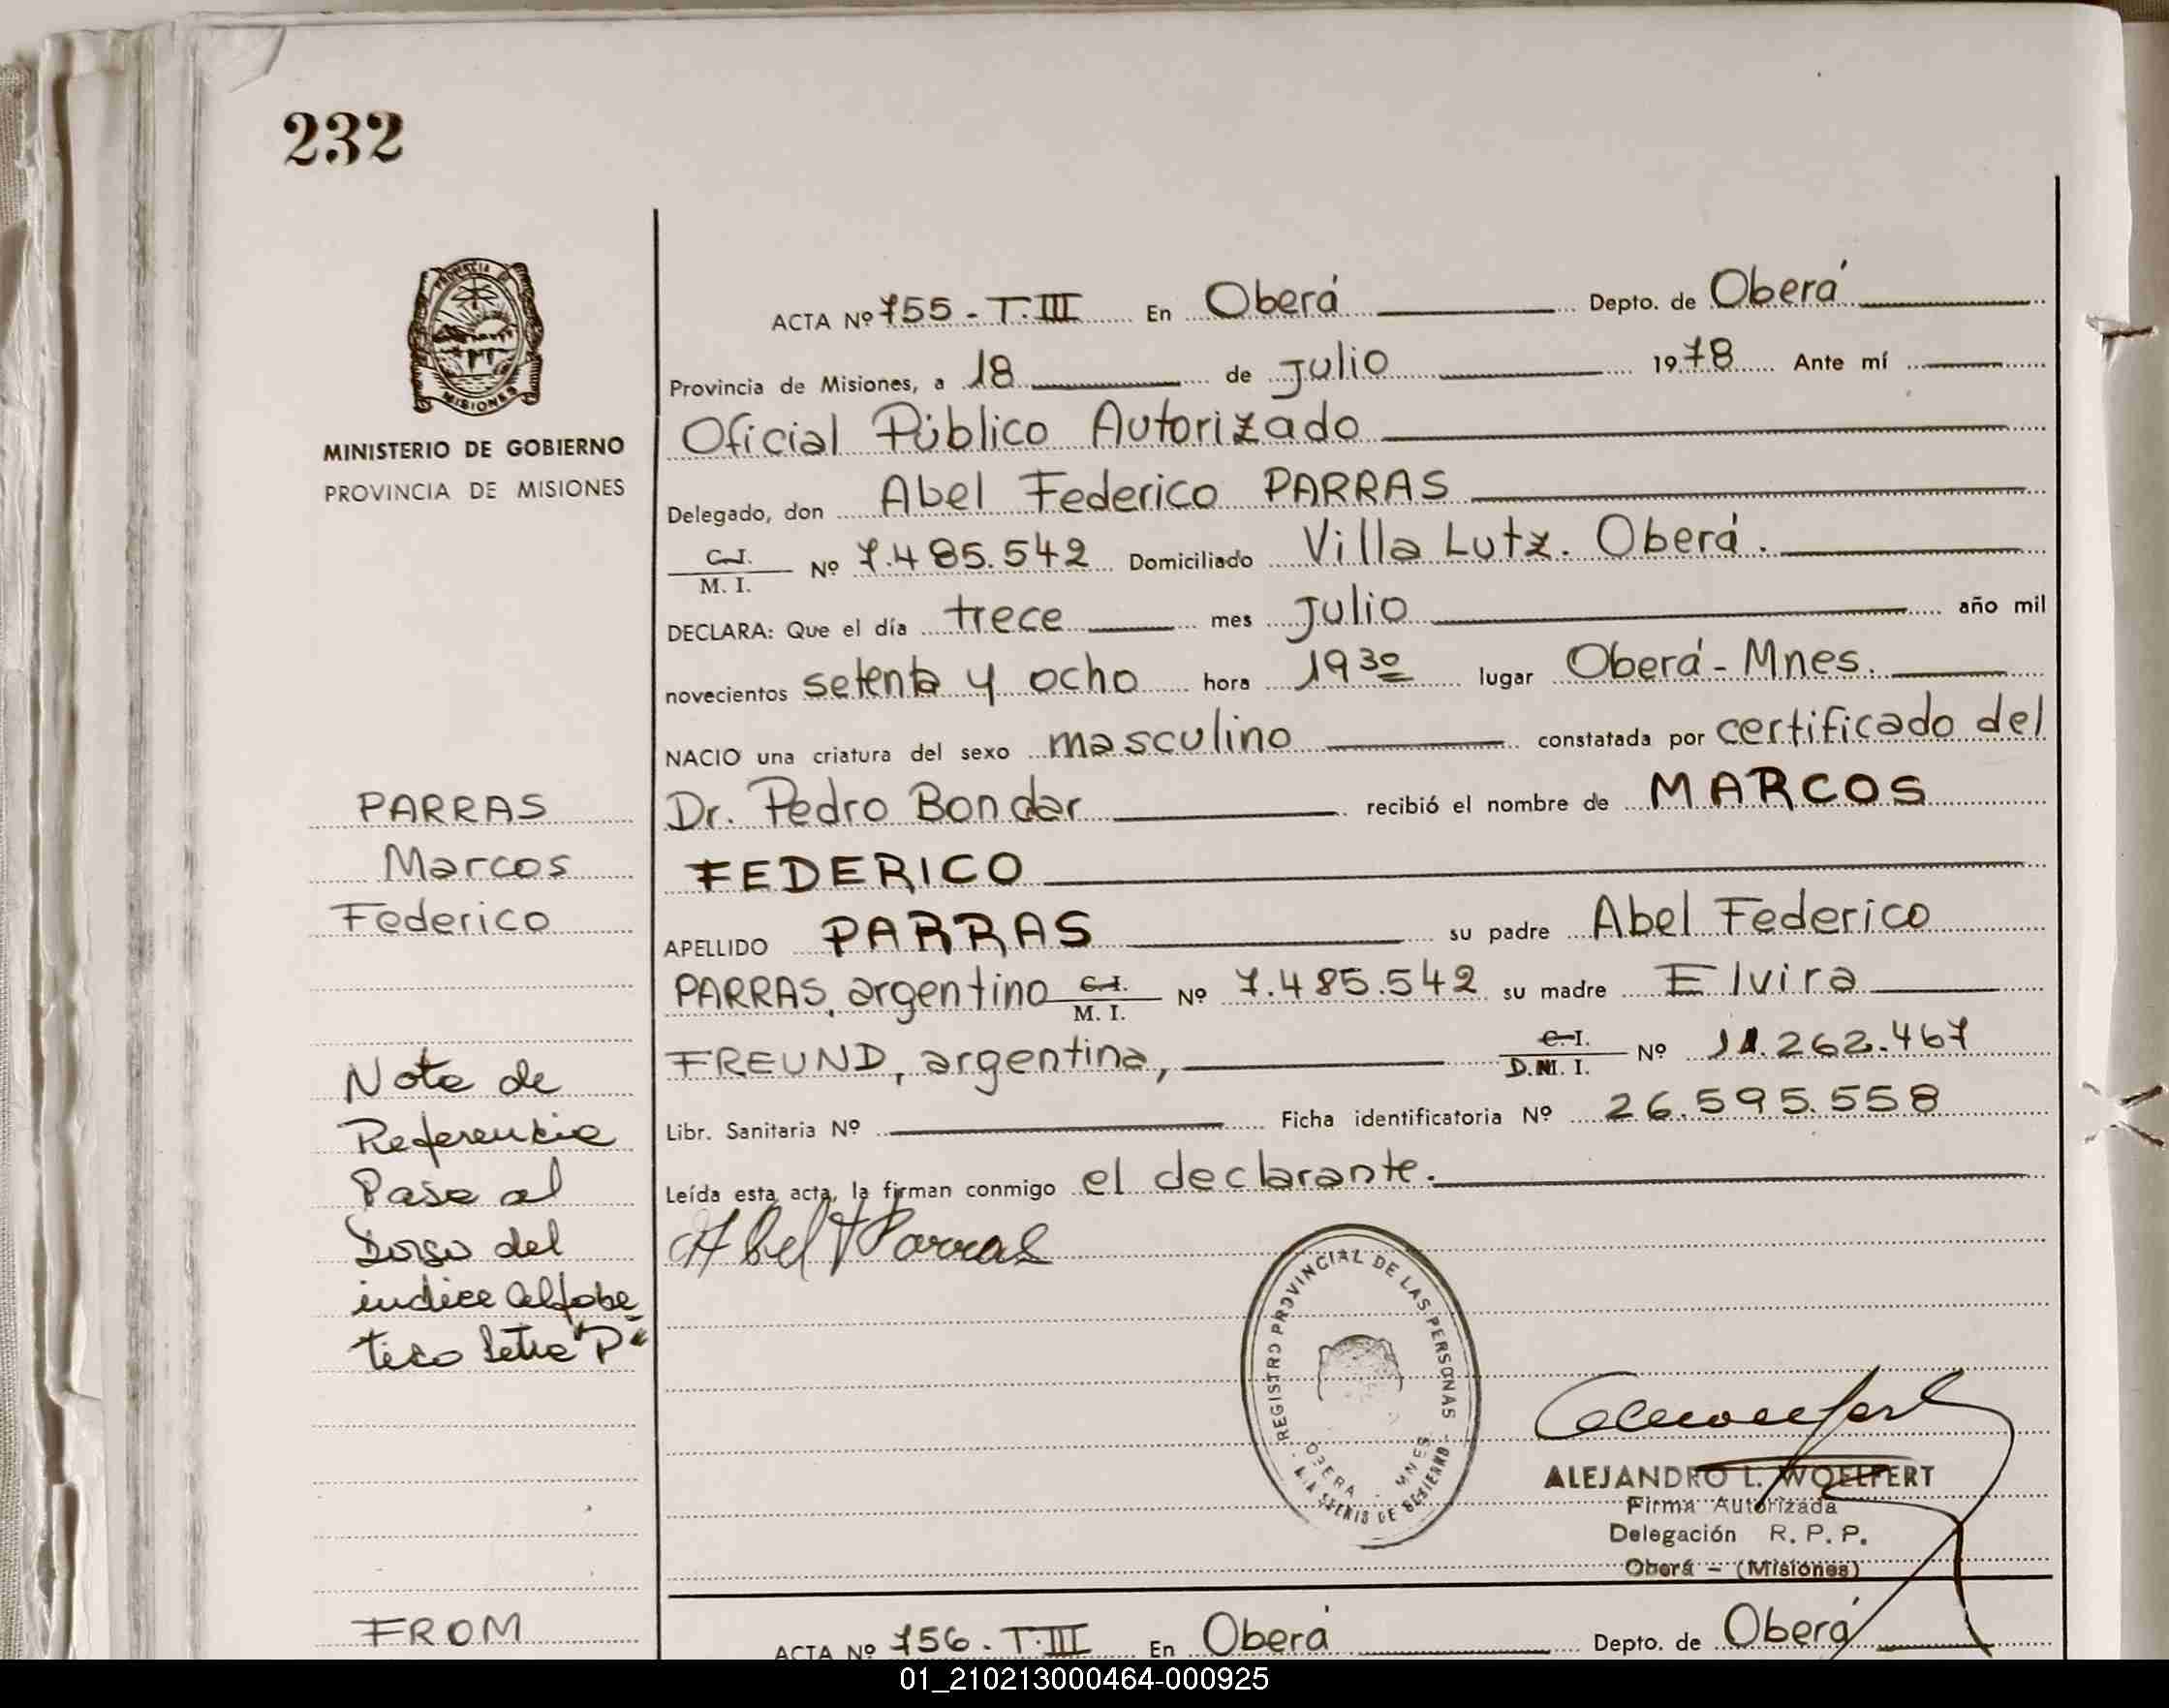 232
PROVINCIA DE
MISIONES
MINISTERIO DE GOBIERNO
PROVINCIA DE MISIONES
ACTA Nº 755 - T.III En Oberá Depto. de Oberá
Provincia de Misiones, a 18 de Julio 1978 Ante mí
Oficial Público Autorizado
Delegado, don Abel Federico PARRAS
C.I.
M. I. Nº 7.485.542 Domiciliado Villa Lutz. Oberá.
DECLARA: Que el día trece mes Julio año mil
novecientos setenta y ocho hora 19 30 lugar Oberá - Mnes.
NACIO una criatura del sexo masculino constatada por certificado del
Dr. Pedro Bondar recibió el nombre de MARCOS
FEDERICO
APELLIDO PARRAS su padre Abel Federico
PARRAS, argentino C.I.
M. I. Nº 7.485.542 su madre Elvira
FREUND, argentina, C.I.
D.M. I. Nº 11.262.467
Libr. Sanitaria Nº Ficha identificatoria Nº 26.595.558
Leída esta acta, la firman conmigo el declarante.
Abel F Parras
PARRAS
Marcos
Federico
Nota de
Referencia
Pase al
Dorso del
indice Alfabe
tico letra "P"
REGISTRO PROVINCIAL DE LAS PERSONAS
OBERA - MNES
ALEJANDRO L. WOELFERT
Firma Autorizada
Delegación R. P. P.
Oberá - (Misiones)
FROM
ACTA Nº 756 - T.III En Oberá Depto. de Oberá
01_210213000464-000925